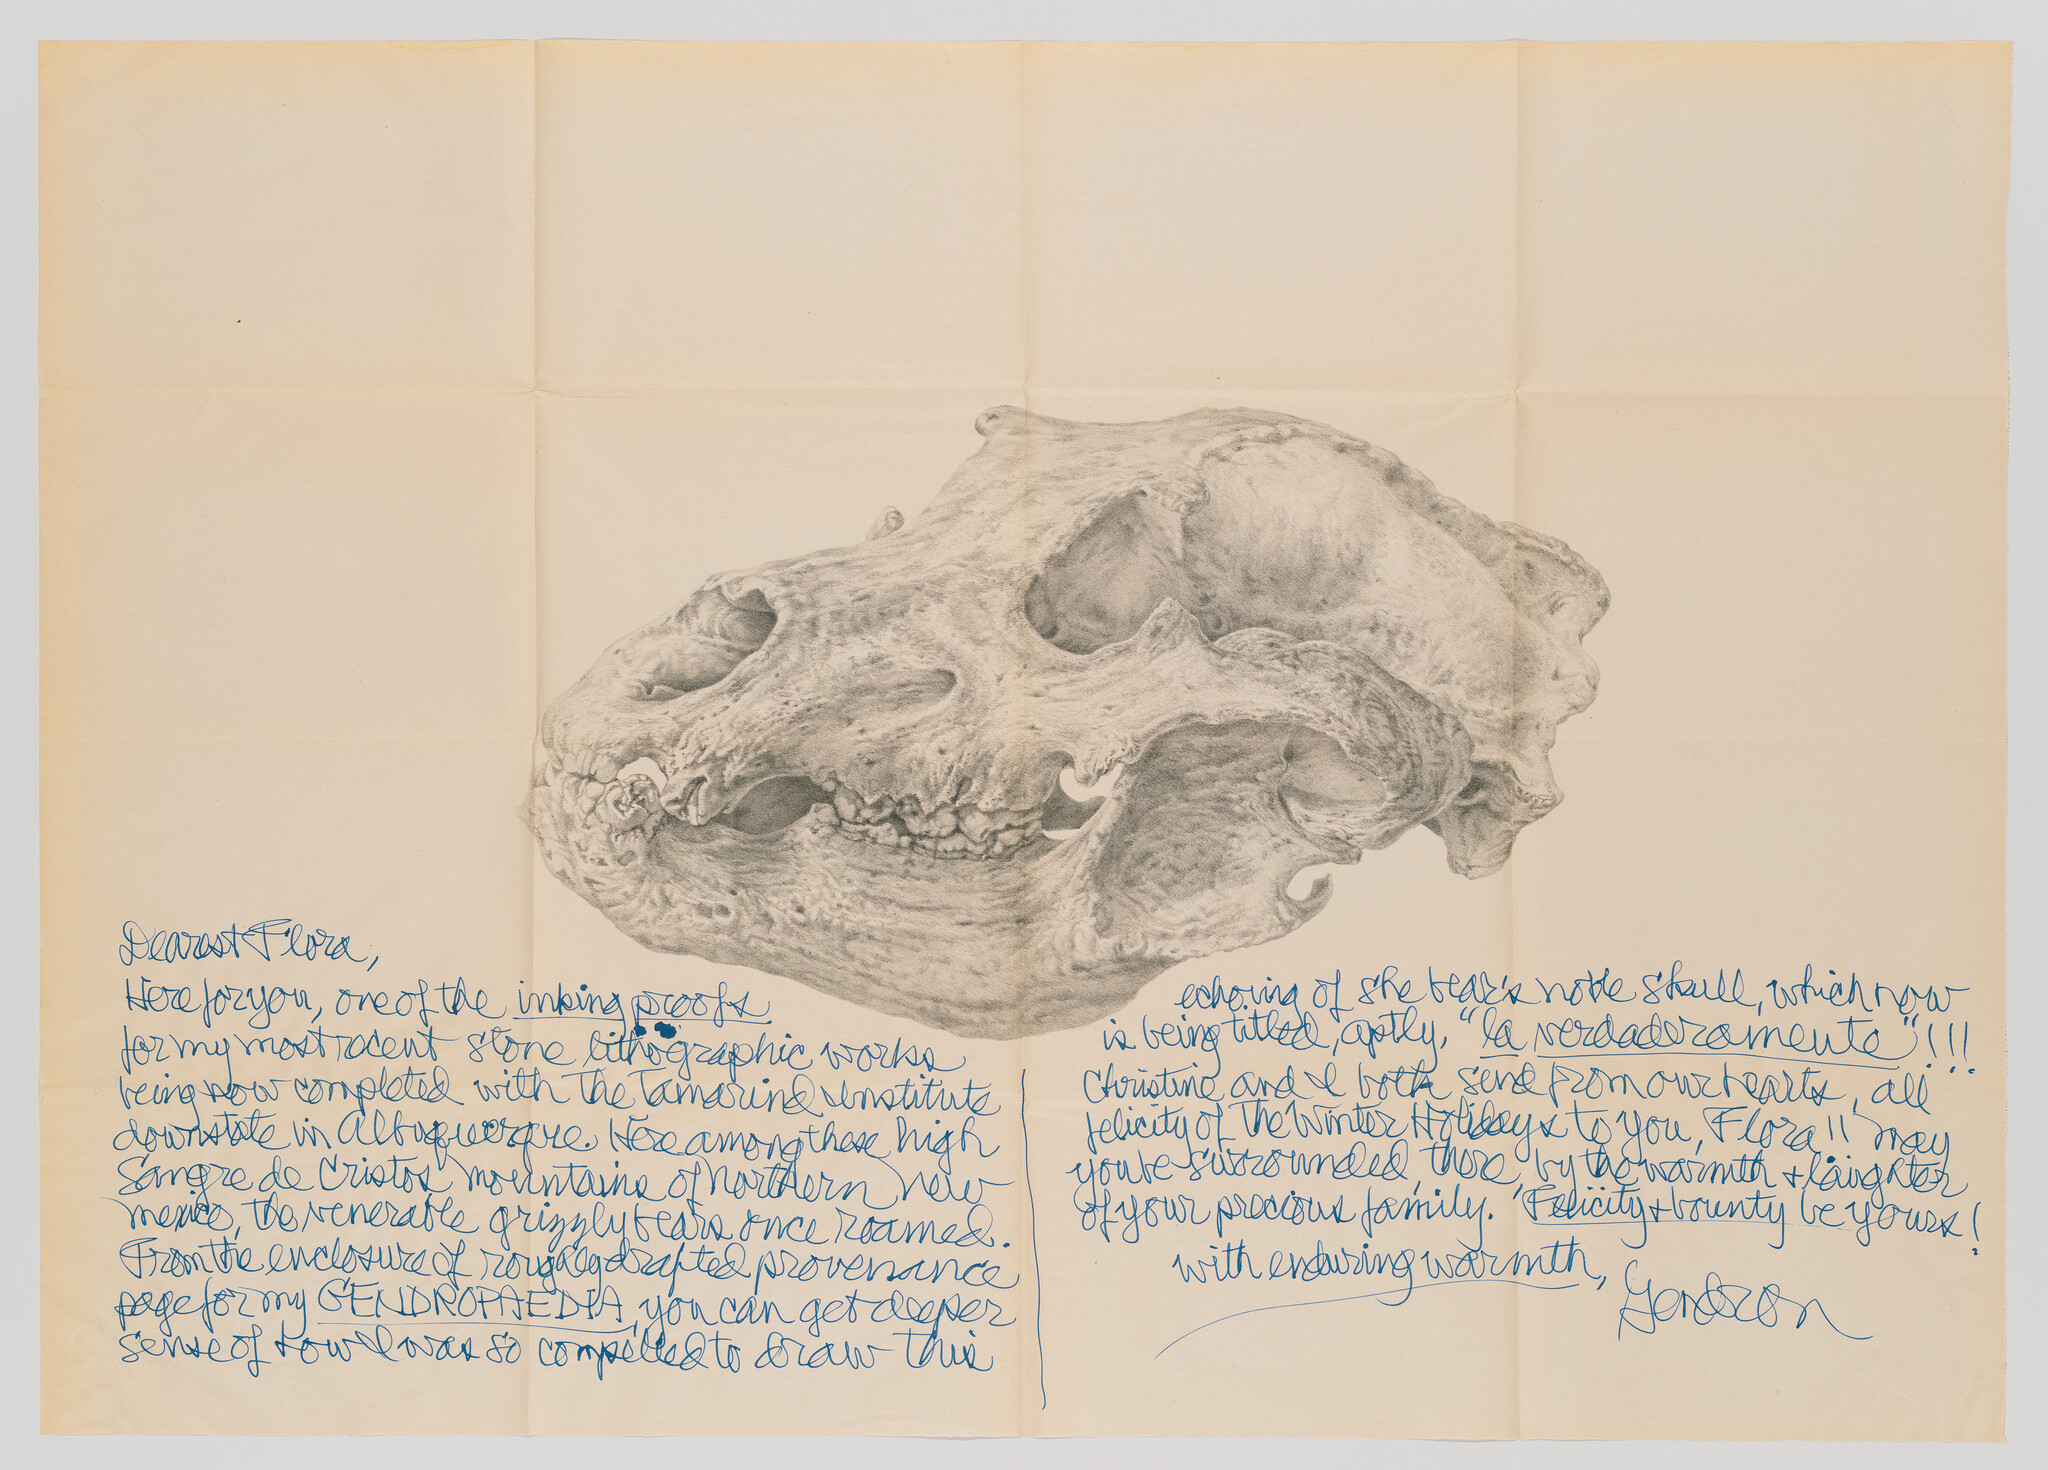 Dearest Flora,
Here for you, one of the inking proofs
for my most recent stone lithographic works
being now completed with The Tamarind Institute
downstate in Albuquerque. Here among these high
Sangre de Cristos mountains of Northern New
Mexico, the venerable grizzly bears once roamed.
From the enclosure of roughly drafted provenance
page for my GENDROPAEDIA, you can get deeper
sense of how I was so compelled to draw this
echoing of she bear's noble skull, which now
is being titled, aptly, "la verdaderamente"!!!
Christine and I both send from our hearts, all
felicity of The Winter Holidays to you, Flora!! May
you be surrounded, there, by the warmth & laughter
of your precious family. Felicity & bounty be yours!
with enduring warmth,
Gendron